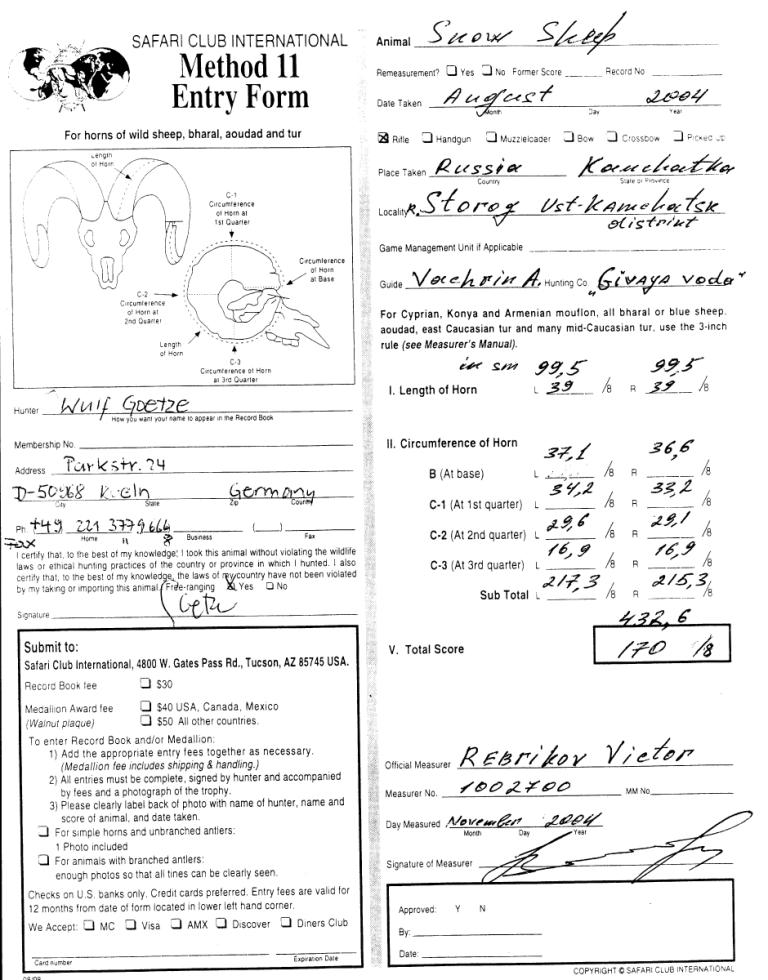 SAFARI CLUB INTERNATIONAL
Method 11
Entry Form
For horns of wild sheep, bharal, aoudad and tur
Length
of Horn
C-1
Circumference
of Horn at
1st Quarter
Circumference
of Horn
at Base
C-2
Circumference
of Horn at
2nd Quarter
Length
of Horn
C-3
Circumference of Horn
at 3rd Quarter
Hunter Wulf Goetze
How you want your name to appear in the Record Book
Membership No.
Address Parkstr. 24
D-50968 Koeln Germany
City State Zip Country
Ph +49 221 3779666 ( )
Home Business Fax
Fax 8
I certify that, to the best of my knowledge, I took this animal without violating the wildlife
laws or ethical hunting practices of the country or province in which I hunted. I also
certify that, to the best of my knowledge, the laws of my country have not been violated
by my taking or importing this animal. Free-ranging X Yes No
Signature
Submit to:
Safari Club International, 4800 W. Gates Pass Rd., Tucson, AZ 85745 USA.
Record Book fee $30
Medallion Award fee $40 USA, Canada, Mexico
(Walnut plaque) $50 All other countries.
To enter Record Book and/or Medallion:
1) Add the appropriate entry fees together as necessary.
(Medallion fee includes shipping & handling.)
2) All entries must be complete, signed by hunter and accompanied
by fees and a photograph of the trophy.
3) Please clearly label back of photo with name of hunter, name and
score of animal, and date taken.
For simple horns and unbranched antlers:
1 Photo included
For animals with branched antlers:
enough photos so that all tines can be clearly seen.
Checks on U.S. banks only. Credit cards preferred. Entry fees are valid for
12 months from date of form located in lower left hand corner.
We Accept: MC Visa AMX Discover Diners Club
Card number Expiration Date
Animal Snow Sheep
Remeasurement? Yes No Former Score Record No
Date Taken August 2004
Month Day Year
X Rifle Handgun Muzzleloader Bow Crossbow Picked Up
Place Taken Russia Kamchatka
Country State or Province
Locality R. Storog Ust-Kamchatsk
distrikt
Game Management Unit if Applicable
Guide Vachrin A. Hunting Co. „Givaya voda"
For Cyprian, Konya and Armenian mouflon, all bharal or blue sheep,
aoudad, east Caucasian tur and many mid-Caucasian tur, use the 3-inch
rule (see Measurer's Manual).
in sm 99,5 99,5
I. Length of Horn L 39 /8 R 39 /8
II. Circumference of Horn
37,1 36,6
B (At base) L /8 R /8
34,2 33,2
C-1 (At 1st quarter) L /8 R /8
29,6 29,1
C-2 (At 2nd quarter) L /8 R /8
16,9 16,9
C-3 (At 3rd quarter) L /8 R /8
217,3 215,3
Sub Total L /8 R /8
432,6
V. Total Score 170 /8
Official Measurer REBRIKOV Victor
Measurer No. 1002700 MM No
Day Measured November 2004
Month Day Year
Signature of Measurer
Approved: Y N
By:
Date:
COPYRIGHT © SAFARI CLUB INTERNATIONAL